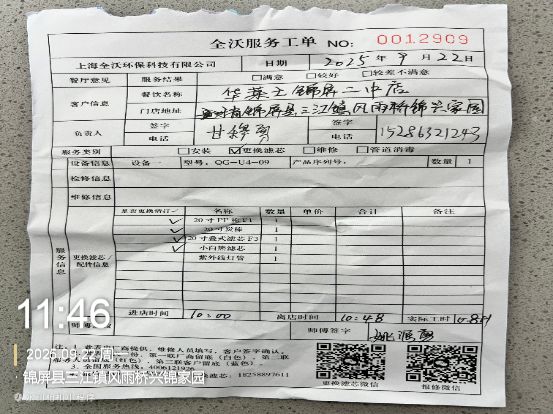 全沃服务工单 NO: 0012909
上海全沃环保科技有限公司 日期 2025年9月22日
餐厅意见 服务结果 □满意 □较好 □较差不满意
客户信息 餐饮名称 华莱士锦屏二中店
门店地址 锦屏县三江镇风雨桥锦兴家园
负责人 签字 电话 签字 电话 15286321243
服务类别 □安装 ☑更换滤芯 □维修 □管道消毒
设备信息 设备一 型号: QG-U4-09 产品序列号: 数量 1
检修信息
维修信息
服务信息 更换滤芯/配件信息
是否更换请打✓ 名称 数量 单价 合计 备注
✓ 20寸PP 1
✓ 20寸炭棒 1
✓ 20寸叠式滤芯 1
✓ 小白热滤芯 1
紫外线灯管 1
进店时间 10:00 离店时间 10:48 实际工时
师傅签字
全国服务热线: 4006121926
18258897611
更换滤芯微信 报修微信
11:46
2025.09.22 周一
锦屏县三江镇风雨桥兴锦家园